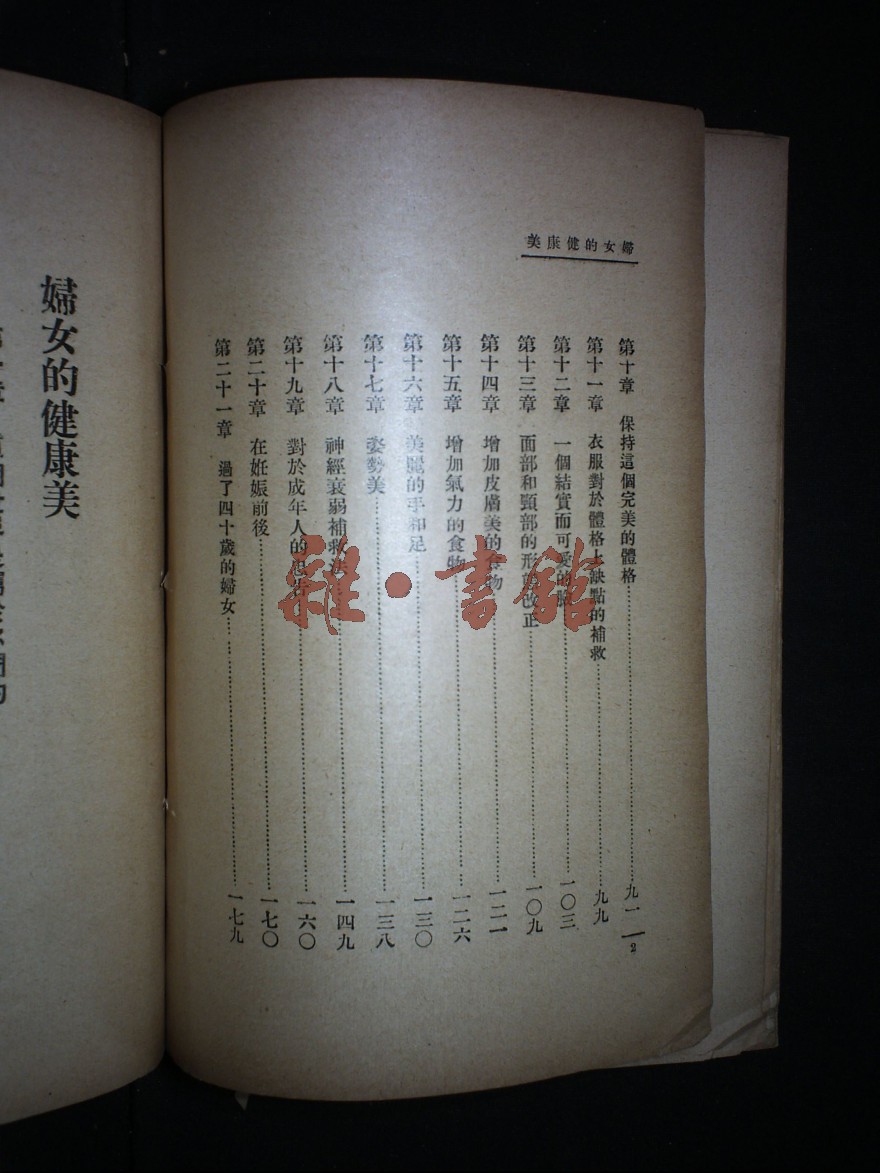 婦女的健康美
第十章 保持這個完美的體格……九二
第十一章 衣服對於體格上缺點的補救……九九
第十二章 一個結實而可愛的……一〇三
第十三章 面部和頸部的形態改正……一〇九
第十四章 增加皮膚美的食物……一二一
第十五章 增加氣力的食物……一二六
第十六章 美麗的手和足……一三〇
第十七章 姿勢美……一三八
第十八章 神經衰弱補救法……一四九
第十九章 對於成年人的忠告……一六〇
第二十章 在姙娠前後……一七〇
第二十一章 過了四十歲的婦女……一七九
2
婦女的健康美
雜·書館